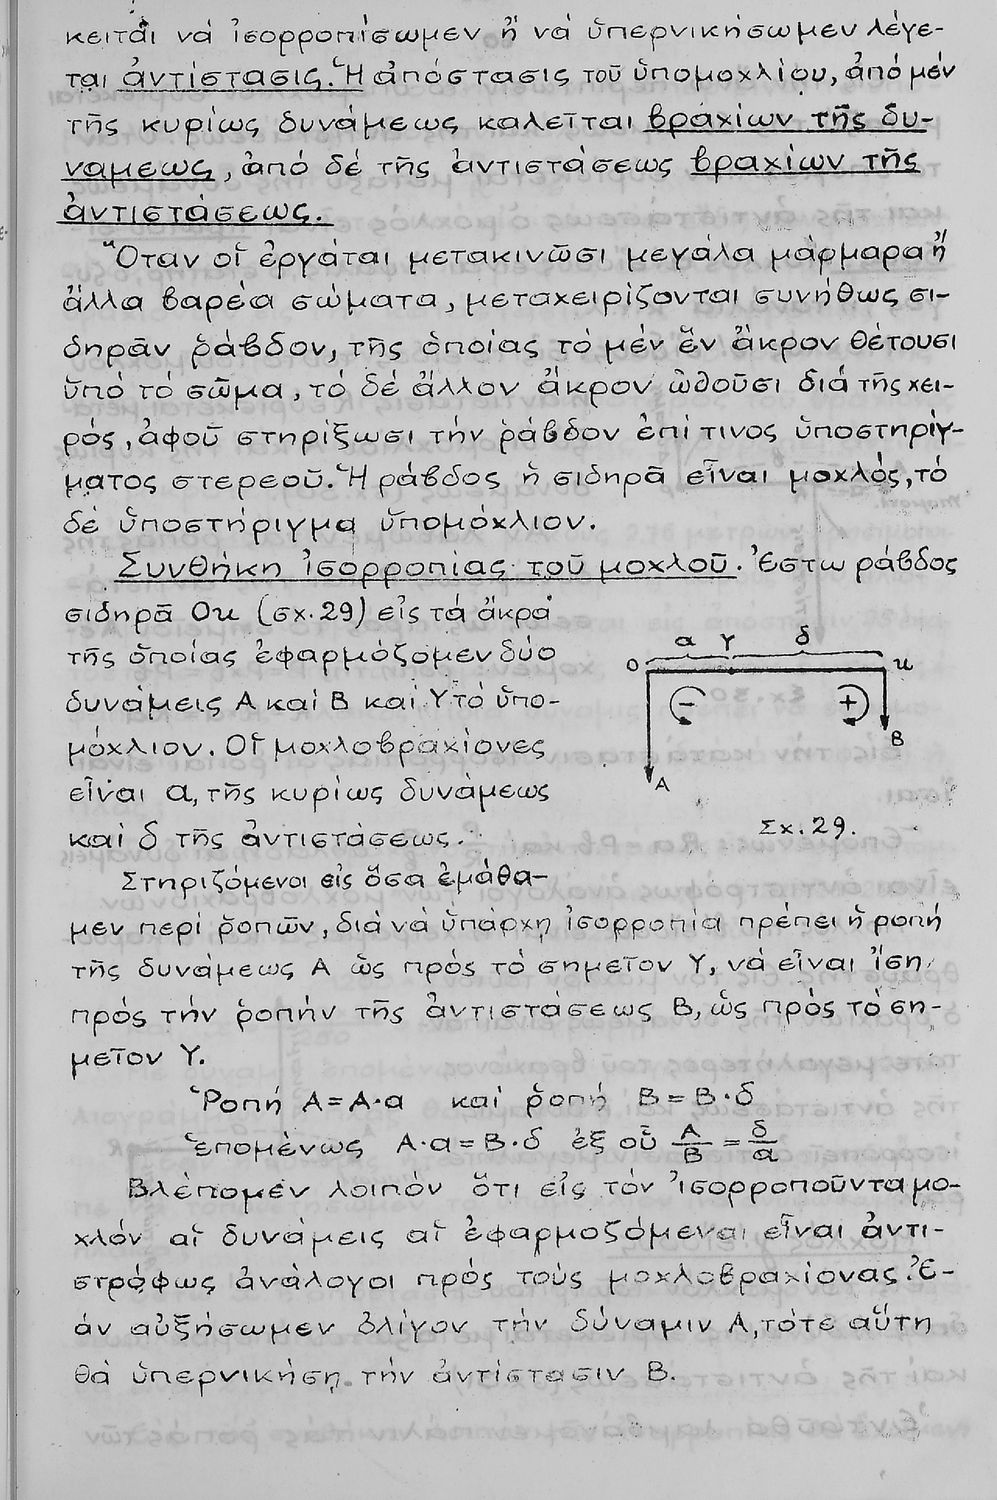 κειται νά ἰσορροπίσωμεν ἤ νά ὑπερνικήσωμεν λέγε-
ται ἀντίστασις. Ἡ ἀπόστασις τοῦ ὑπομοχλίου, ἀπό μέν
τῆς κυρίως δυνάμεως καλεῖται βραχίων τῆς δυ-
νάμεως, ἀπό δέ τῆς ἀντιστάσεως βραχίων τῆς
ἀντιστάσεως.
Ὅταν οἱ ἐργάται μετακινῶσι μεγάλα μάρμαρα ἤ
ἄλλα βαρέα σώματα, μεταχειρίζονται συνήθως σι-
δηρᾶν ῥάβδον, τῆς ὁποίας τό μέν ἕν ἄκρον θέτουσι
ὑπό τό σῶμα, τό δέ ἄλλον ἄκρον ὠθοῦσι διά τῆς χει-
ρός, ἀφοῦ στηρίξωσι τήν ῥάβδον ἐπί τινος ὑποστηρίγ-
ματος στερεοῦ. Ἡ ράβδος ἡ σιδηρᾶ εἶναι μοχλός, τό
δέ ὑποστήριγμα ὑπομόχλιον.
Συνθήκη ἰσορροπίας τοῦ μοχλοῦ. Ἔστω ράβδος
σιδηρᾶ Οκ (σχ. 29) εἰς τά ἄκρα
τῆς ὁποίας ἐφαρμόζομεν δύο
δυνάμεις Α καί Β καί Υ τό ὑπο-
μόχλιον. Οἱ μοχλοβραχίονες
εἶναι α, τῆς κυρίως δυνάμεως
καί δ τῆς ἀντιστάσεως.
α Υ δ
Ο κ
− +
Β
Α
Σχ. 29.
Στηριζόμενοι εἰς ὅσα ἐμάθα-
μεν περί ῥοπῶν, διά νά ὑπάρχῃ ἰσορροπία πρέπει ἡ ροπή
τῆς δυνάμεως Α ὡς πρός τό σημεῖον Υ, νά εἶναι ἴση
πρός τήν ῥοπήν τῆς ἀντιστάσεως Β, ὡς πρός τό ση-
μεῖον Υ.
Ῥοπή Α = Α·α καί ῥοπή Β = Β·δ
ἑπομένως Α·α = Β·δ ἐξ οὗ Α/Β = δ/α
Βλέπομεν λοιπόν ὅτι εἰς τόν ἰσορροποῦντα μο-
χλόν αἱ δυνάμεις αἱ ἐφαρμοζόμεναι εἶναι ἀντι-
στρόφως ἀνάλογοι πρός τούς μοχλοβραχίονας. Ἐ-
άν αὐξήσωμεν ὀλίγον τήν δύναμιν Α, τότε αὕτη
θά ὑπερνικήσῃ τήν ἀντίστασιν Β.